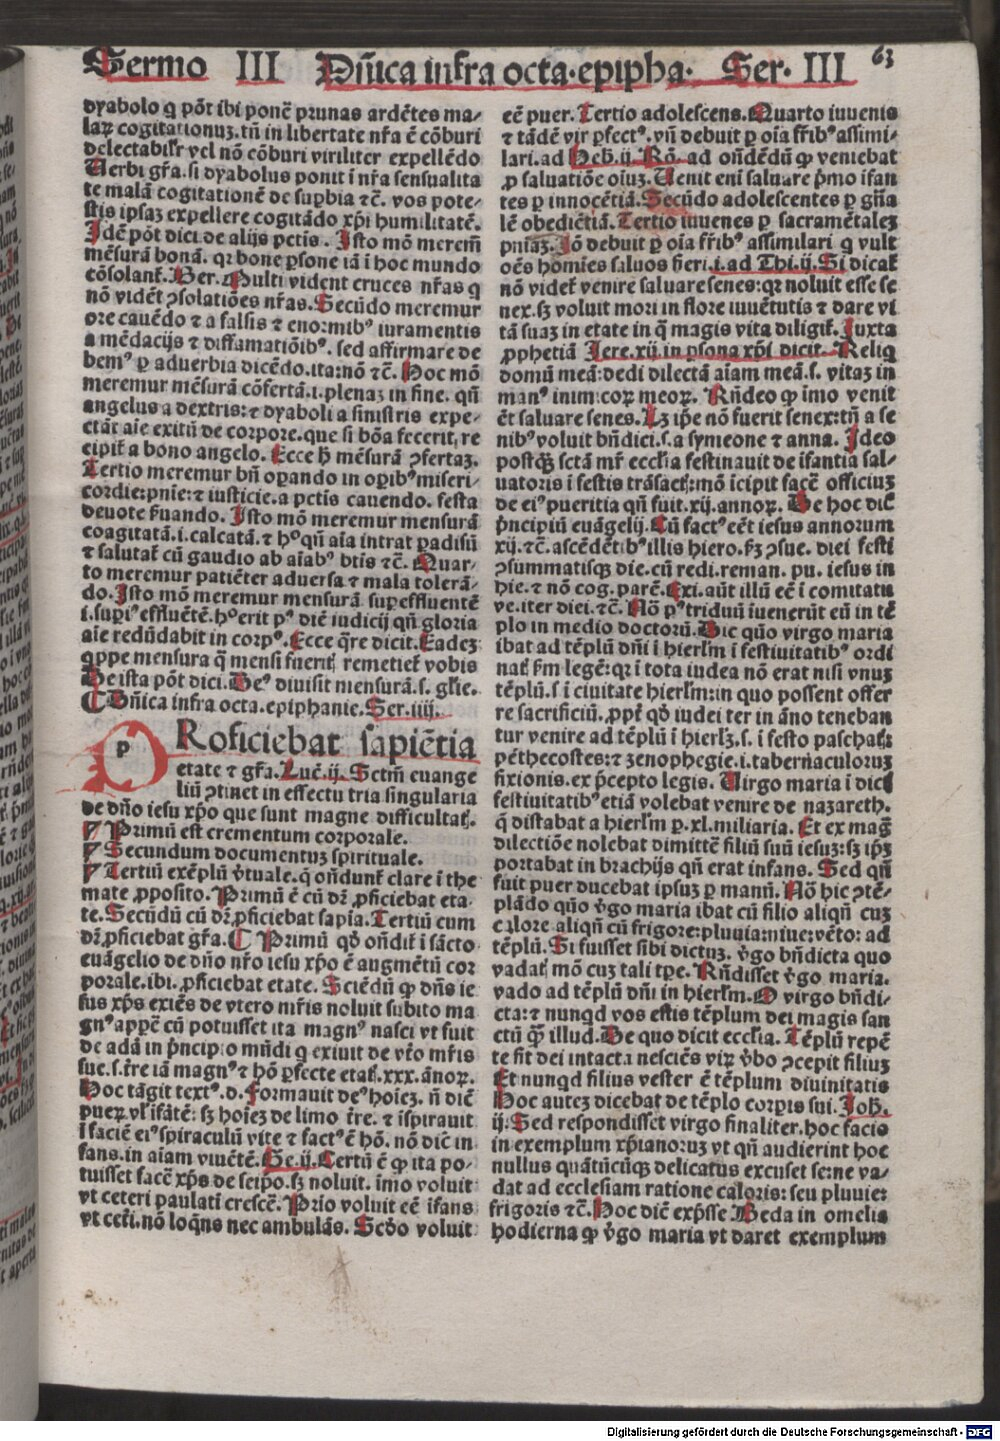 Sermo III Dñica infra octa·epipha· Ser· III 63
dyabolo q põt ibi ponẽ prunas ardẽtes ma-
laꝝ cogitationuʒ. tñ in libertate nr̃a ẽ cõburi
delectabilr̃ vel nõ cõburi viriliter expellẽdo
Uerbi gr̃a. si dyabolus ponit ĩ nr̃a sensualita
te malã cogitationẽ de suꝑbia ⁊c̃. vos pote-
stis ipsaʒ expellere cogitãdo xp̃i humilitatẽ.
Idẽ põt dici de alijs pctis. Isto mõ meremr̃
mẽsurã bonã. qꝛ bone ꝑsone iã ĩ hoc mundo
cõsolant᷑. Ber. Multi vident cruces nr̃as q
nõ vidẽt ꝯsolatiões nr̃as. Secũdo meremur
ore cauẽdo ⁊ a falsis ⁊ enormibꝰ iuramentis
a mẽdacijs ⁊ diffamatiõibꝰ. sed affirmare de
bemꝰ ꝑ aduerbia dicẽdo. ita: nõ ⁊c̃. Hoc mõ
meremur mẽsurã cõfertã. i. plenaʒ in fine. qñ
angelus a dextris: ⁊ dyaboli a sinistris expe-
ctãt aĩe exitũ de corpore. que si bõa fecerit, re
cipit᷑ a bono angelo. Ecce hꝫ mẽsurã ꝯfertaʒ.
Tertio meremur bñ oꝑando in oꝑibꝰ miseri-
cordie: pnĩe: ⁊ iusticie. a pctis cauendo. festa
deuote ẜuando. Isto mõ meremur mensurã
coagitatã. i. calcatã. ⁊ hoꝰ qñ aĩa intrat ꝑadisũ
⁊ salutat᷑ cũ gaudio ab aĩabꝰ btis ⁊c̃. Quar-
to meremur patiẽter aduersa ⁊ mala tolerã-
do. Isto mõ meremur mensurã suꝑeffluentẽ
i. suꝑiꝰ effluẽtẽ. hoꝰ erit pꝰ diẽ iudicij qñ gloria
aĩe redũdabit in corpꝰ. Ecce q̃re dicit. Eadeʒ
qppe mensura q̃ mensi fuerit᷒ remetiet᷑ vobis
De ista põt dici. Deꝰ diuisit mensurã. s. gl̃ie.
⸿ Dñica infra octa. epiphanie. Ser. iiij.
PRoficiebat sapiẽtia
etate ⁊ gr̃a. Luc̃. ij. Sctm̃ euange
liũ ꝯtinet in effectu tria singularia
de dño iesu xp̃o que sunt magne difficultat᷒.
Primũ est crementum corporale.
Secundum documentuʒ spirituale.
Tertiũ exẽplũ v̓tuale. q̃ oñdunt᷑ clare ĩ the
mate ꝓposito. Primũ ẽ cũ dꝛ̃ ꝓficiebat eta-
te. Secũdũ cũ dꝛ̃ ꝓficiebat sapĩa. Tertiũ cum
dꝛ̃ ꝓficiebat gr̃a. ⸿ Primũ qꝺ oñdit᷑ ĩ sãcto
euãgelio de dño nr̃o iesu xp̃o ẽ augmẽtũ cor
porale. ibi. ꝓficiebat etate. Sciẽdũ ꝙ dñs ie
sus xp̃s exiẽs de vtero mr̃is noluit subito ma
gnꝰ appẽ cũ potuisset ita magnꝰ nasci vt fuit
de adã in ṗncipio mũdi q exiuit de vt̃o mr̃is
sue. s. t̃re iã magnꝰ ⁊ hõ ꝑfecte etat᷒. xxx. ãnoꝝ.
Hoc tãgit textꝰ. d. Formauit deꝰ hoĩeʒ. ñ diẽ
pueꝝ vl̓ ifãtẽ: sꝫ hoĩeʒ de limo t̃re. ⁊ ispirauit
ĩ faciẽ eiꝰ spiraculũ vite ⁊ factꝰ ẽ hõ. nõ diẽ in
fans. in aĩam viuẽtẽ. Ge. ij. Certũ ẽ ꝙ ita po-
tuisset facẽ xp̃s de seĩpo. sꝫ noluit. ĩmo voluit
vt ceteri paulati crescẽ. Prĩo voluit eẽ ifans
vt cet̃i. nõ loq̃ns nec ambulãs. Scd̃o voluit
eẽ puer. Tertio adolescens. Quarto iuuenis
⁊ tãdẽ vir ꝑfectꝰ. vñ debuit ꝑ oĩa fr̃ibꝰ assimi-
lari. ad Heb. ij. Rõ. ad oñdẽdũ ꝙ veniebat
ꝓ saluatiõe oĩuʒ. Uenit enĩ saluare ṗmo ifan
tes ꝑ innocẽtiã. Secũdo adolescentes ꝑ gñia
lẽ obediẽtiã. Tertio iuuenes ꝑ sacramẽtaleʒ
pniaʒ. Iõ debuit ꝑ oĩa fr̃ibꝰ assimilari q vult
oẽs homĩes saluos fieri. i. ad Thi. ij. Si dicat᷑
nõ videt᷑ venire saluare senes: qꝛ noluit esse se
nex. sꝫ voluit mori in flore iuuẽtutis ⁊ dare vi
tã suaʒ in etate in q̃ magis vita diligit᷑. Iuxta
ꝓphetiã Iere. xij. in ꝑsona xp̃i dicit. Reliq
domũ meã: dedi dilectã aĩam meã. s. vitaʒ in
manꝰ inimicoꝝ meoꝝ. Rñdeo ꝙ imo venit
ẽt saluare senes. Lꝫ ip̃e nõ fuerit senex: tñ a se
nibꝰ voluit bñdici. s. a symeone ⁊ anna. Ideo
postq̃ꝫ sctã mr̃ ecclĩa festinauit de ifantia sal-
uatoris ĩ festis trãsact᷒: mõ icipit facẽ officiuʒ
de eiꝰ pueritia qñ fuit. xij. annoꝝ. De hoc dic̃
ṗncipiũ euãgelij. Cũ factꝰ eẽt iesus annorum
xij. ⁊c̃. ascẽdẽtibꝰ illis hiero. ẜm ꝯsue. diei festi
ꝯsummatisqꝫ die. cũ redi. reman. pu. iesus in
hie. ⁊ nõ cog. parẽ. Exi. aũt illũ eẽ ĩ comitatu
ve. iter diei. ⁊c̃. Nõ pꝰ triduũ iuenerũt eũ in tẽ
plo in medio doctorũ. Dic quõ virgo maria
ibat ad tẽplũ dñi ĩ hierlm̃ ĩ festiuitatibꝰ ordi
nat᷒ ẜm legẽ: qꝛ ĩ tota iudea nõ erat nisi vnuʒ
tẽplũ. s ĩ ciuitate hierlm̃: in quo possent offer
re sacrificiũ. ꝓpt̃ qꝺ iudei ter in ãno teneban
tur venire ad tẽplũ ĩ hierlꝫ. s. ĩ festo paschat᷒:
pẽthecostes: ⁊ zenophegie. i. tabernaculoruʒ
fixionis. ex ṗcepto legis. Uirgo maria ĩ dict᷒
festiuitatibꝰ etiã volebat venire de nazareth.
q̃ distabat a hierlm̃ ꝑ. xl. miliaria. Et ex mag̃
dilectiõe nolebat dimittẽ filiũ suũ iesuʒ: sꝫ ipꝫ
portabat in brachijs qñ erat infans. Sed qñ
fuit puer ducebat ipsuʒ ꝑ manũ. Nõ hic ꝯtẽ-
plãdo quõ v̓go maria ibat cũ filio aliqñ cuʒ
calore aliqñ cũ frigore: pluuia: niue: vẽto: ad
tẽplũ. Si fuisset sibi dictuʒ. v̓go bñdicta quo
vadat᷒ mõ cuʒ tali tꝑe. Rñdisset v̓go maria.
vado ad tẽplũ dñi in hierlm̃. O virgo bñdi-
cta: ⁊ nunqd vos estis tẽplum dei magis san
ctũ q̃ꝫ illud. De quo dicit ecclĩa. Tẽplũ repẽ
te fit dei intacta nesciẽs viꝝ v̓bo ꝯcepit filiuʒ
Et nunqd filius vester ẽ tẽplum diuinitatis
Hoc auteʒ dicebat de tẽplo corꝑis sui. Joh̃.
ij. Sed respondisset virgo finaliter. hoc facio
in exemplum xp̃ianoruʒ vt qñ audierint hoc
nullus quãtũcũqꝫ delicatus excuset se: ne va-
dat ad ecclesiam ratione caloris: seu pluuie:
frigoris ⁊c̃. Hoc diẽ exp̃sse Beda in omelia
hodierna ꝙ v̓go maria vt daret exemplum
Digitalisierung gefördert durch die Deutsche Forschungsgemeinschaft - DFG